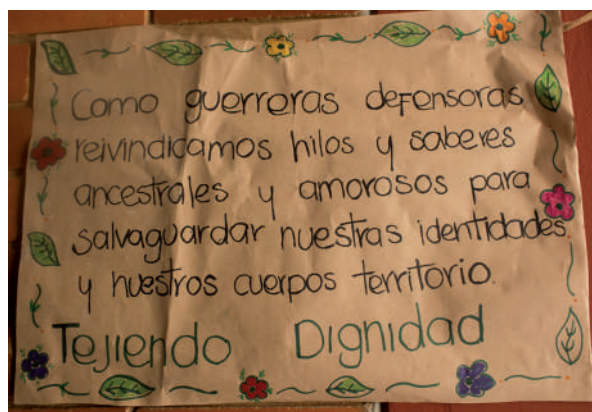 Como guerreras defensoras
reivindicamos hilos y saberes
ancestrales y amorosos para
salvaguardar nuestras identidades
y nuestros cuerpos territorio.
Tejiendo Dignidad